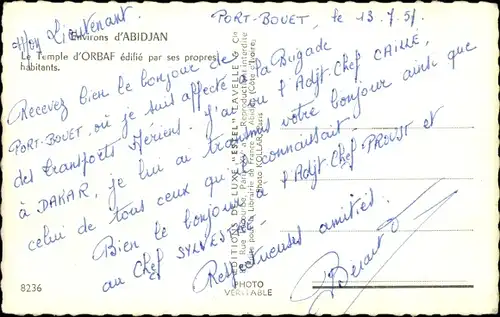 PORT-BOUET, le 13.7.51.
Mon Lieutenant.
Environs d'ABIDJAN
Le Temple d'ORBAF édifié par ses propres
habitants.
Recevez bien le bonjour de
PORT-BOUET où je suis affecté à la Brigade
des Transports Aériens. J'ai vu l'Adjt-Chef CAILLÉ,
à DAKAR, je lui ai transmis votre bonjour ainsi que
celui de tous ceux qui le connaissait.
Bien le bonjour à l'Adjt Chef PROUST et
au Chef SYLVESTRE
Respectueuses amitiés.
EDITIONS DE LUXE "ESTEL" LAVELLE & Cie
Reproduction interdite
PHOTO
VÉRITABLE
8236